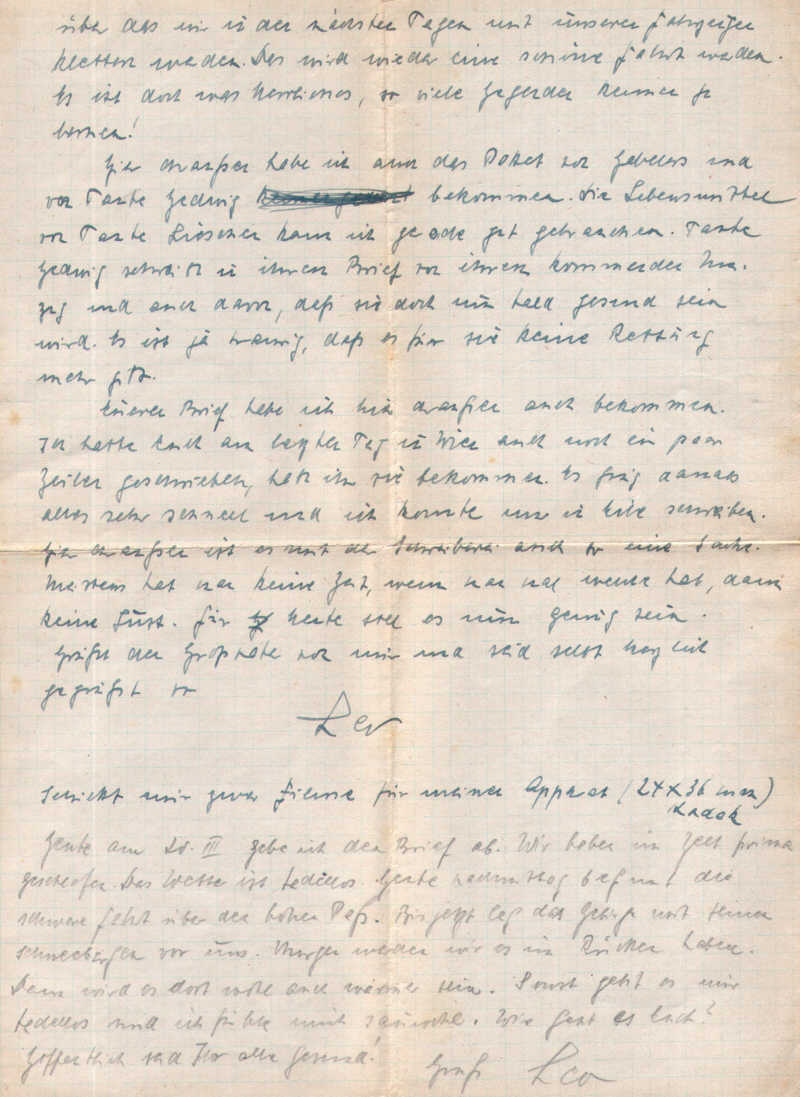 über das wir in den nächsten Tagen mit unseren Fahrzeugen
klettern werden. Das wird wieder eine schöne Fahrt werden.
Es ist doch was Herrliches, so viele Gegenden kennen zu
lernen!
Hier draußen habe ich auch das Paket von Gebelers und
von Tante Hedwig bekommen. Die Lebensmittel
von Tante Lieschen kann ich gerade gut gebrauchen. Tante
Hedwig schreibt in ihrem Brief von ihrem kommenden Um-
zug und auch davon, daß sie doch nun bald gesund sein
wird. Es ist ja traurig, daß es für sie keine Rettung
mehr gibt.
Eueren Brief habe ich hier draußen auch bekommen.
Ich hatte Euch am letzten Tag in Wien auch noch ein paar
Zeilen geschrieben, habt ihr sie bekommen. Es ging damals
alles sehr schnell und ich konnte nur in Eile schreiben.
Hier draußen ist es mit der Schreiberei auch so eine Sache.
Meistens hat man keine Zeit, wenn man mal welche hat, dann
keine Lust. Für heute soll es nun genug sein.
Grüßt den Großvater von mir und seid selbst herzlich
gegrüßt von
Leo
Schickt mir zwei Filme für meinen Apparat (24 x 36 mm)
Kodak
Heute am III gebe ich den Brief ab. Wir haben im Zelt prima
geschlafen. Das Wetter ist tadellos. Heute nachmittag beginnt die
schwere Fahrt über den hohen Paß. Bis jetzt lag das Gebirge mit seinen
Schneebergen vor uns. Morgen werden wir es im Rücken haben.
Dann wird es dort wohl auch wärmer sein. Sonst geht es mir
tadellos und ich fühle mich sauwohl. Wie geht es Euch?
Hoffentlich seid Ihr alle gesund!
Gruß Leo